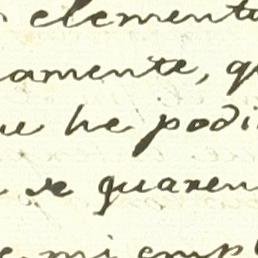 elemento
amente, q
he podi
se quaren
mi emp